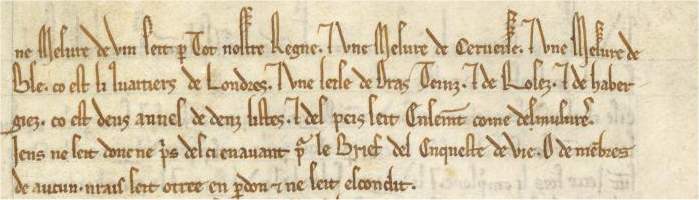 ne Mesure de vin seit p̱ Tot nostre Regne. ⁊ vne Mesure de Cerueise. ⁊ vne Mesure de
Ble. co est li Quartiers de Londres. ⁊ vne leise de Dras Teinz. ⁊ de Rosez. ⁊ de haber
giez. co est deus aunes dedenz listes. ⁊ del peis seit Ensemt̄ come des mesures.
Riens ne seit done ne p̾s desci enauant pᵃ le Brief del Enqueste de vie. O de mēbres
de aucun. mais seit otree en p̱don ⁊ ne seit escondit.